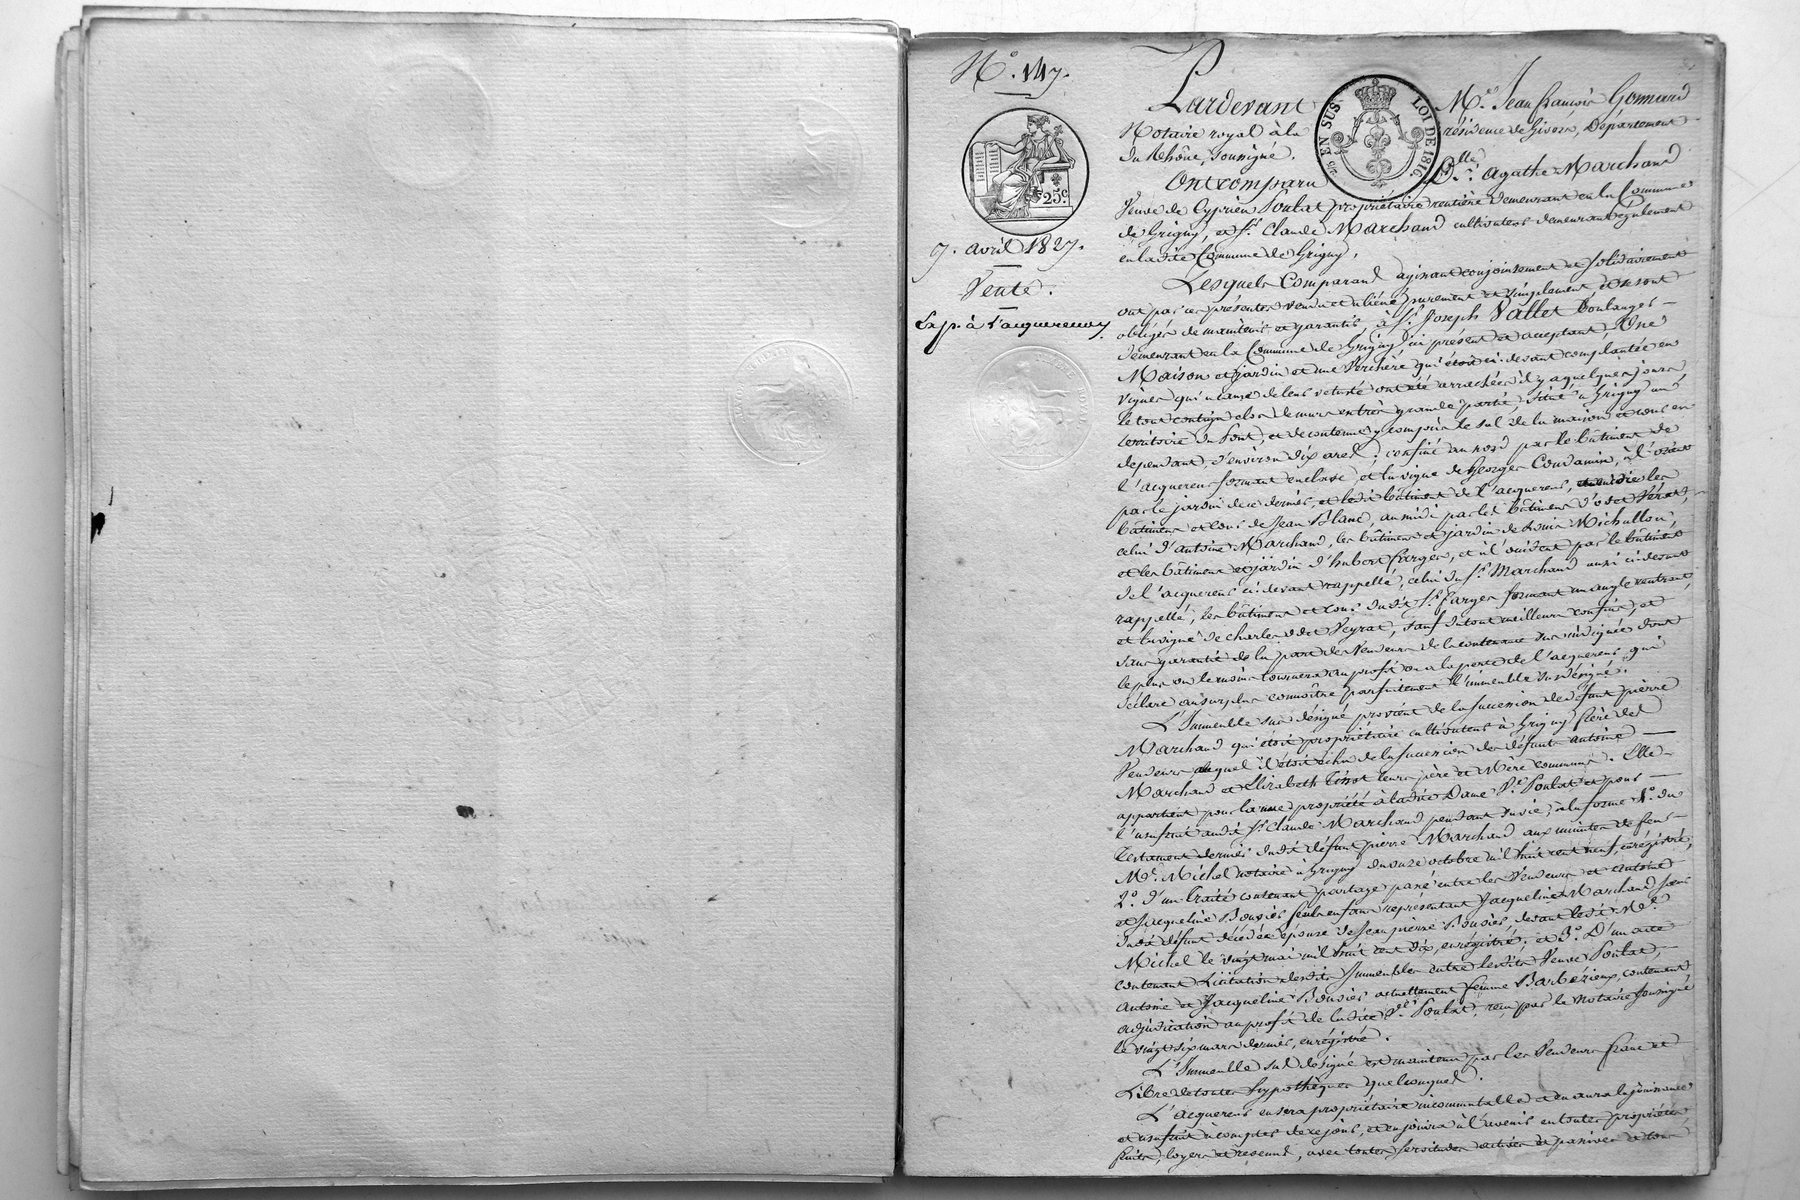 N.° 147.
25c.
7. avril 1827.
Vente.
Exp. à l'acquereur.
EN SUS. LOI DE 1816.
Pardevant Me. Jean françois Gonnard
Notaire royal à la résidence de Givors, Département
du Rhône, soussigné.
Ont comparu D.lle Agathe Marchand
Veuve de Cyprien Poulat propriétaire rentière demeurant en la Commune
de Grigny, et Sr. Claude Marchand cultivateur demeurant également
en ladite Commune de Grigny,
Lesquels Comparans agissant conjointement et solidairement
ont par ces présentes vendu et aliéné purement et simplement et se sont
obligés de maintenir et garantir, à Sr. Joseph Vallet Boulanger
demeurant en la Commune de Grigny ici présent et acceptant, Une
Maison et jardin et une Verchère qui étoit ci-devant complantée en
vignes qui à cause de leur vetusté ont été arrachées il y a quelques jours,
le tout contigu clos de murs en très grande partie, situé à Grigny au
territoire du Pont, et de contenue y compris le sol de la maison et cour en
dependant, d'environ dix ares; confiné au nord par le bâtiment de
l'acquereur formant enclave, et la vigne de Georges Condamin, à l'orient
par le jardin de ce dernier, et ledit bâtiment de l'acquereur, les
bâtimens et cour de Jean Blanc, au midi par les bâtimens d'odet Vérat,
celui d'antoine Marchand, les bâtimens et jardin de Louis Michallon,
et les bâtimens et jardin d'hubert farges, et à l'occident par le bâtiment
de l'acquereur ci-devant rappellé, celui du Sr. Marchand aussi ci-devant
rappellé, les bâtimens et cour dudit Sr. farges formant un angle rentrant,
et la vigne de charles odet Veyrat, sauf du tout meilleurs confins, et
sans garantie de la part des Vendeurs de la contenance sus indiquée dont
le plus ou le moins tournera au profit ou a la perte de l'acquereur qui
déclare au surplus connoître parfaitement l'immeuble sus désigné.
L'Immeuble sus désigné provient de la succession de défunt pierre
Marchand qui étoit propriétaire cultivateur à Grigny frère des
Vendeurs auquel il étoit échu de la succession des défunts antoine
Marchand et Elizabeth Tissot leurs père et Mère communs. Elle
appartient pour la nue propriété à ladite Dame Ve. Poulat et pour
l'usufruit audit Sr. Claude Marchand pendant sa vie; en la forme 1.° du
Testament dernier dudit défunt pierre Marchand aux minutes de feu
Me. Michel notaire à Grigny du onze octobre mil huit cent neuf, enrégistré,
2.° d'un traité contenant partage passé entre les Vendeurs et antoine
et Jacqueline Bouvier seuls enfans représentant Jacqueline Marchand sœur
dudit défunt décédée épouse de Jean pierre Bouvier, devant ledit Me.
Michel le vingt mai mil huit cent dix, enrégistré; et 3.° D'un acte
contenant Licitation desdits Immeubles entre lesdits Veuve Poulat,
antoine et Jacqueline Bouvier actuellement femme Barbérieux, contenant
adjudication au profit de ladite Ve. Poulat, reçu par le Notaire soussigné
le vingt six mars dernier, enrégistré.
L'Immeuble sus désigné est maintenu par les Vendeurs franc et
Libre de toutes hypothèques quelconques.
L'acquereur en sera propriétaire incommutable et en aura la jouissance
et usufruit à compter de ce jour, et en jouira à l'avenir en toutes propriétés
fruits, loyers et revenus, avec toutes servitudes actives et passives et tous